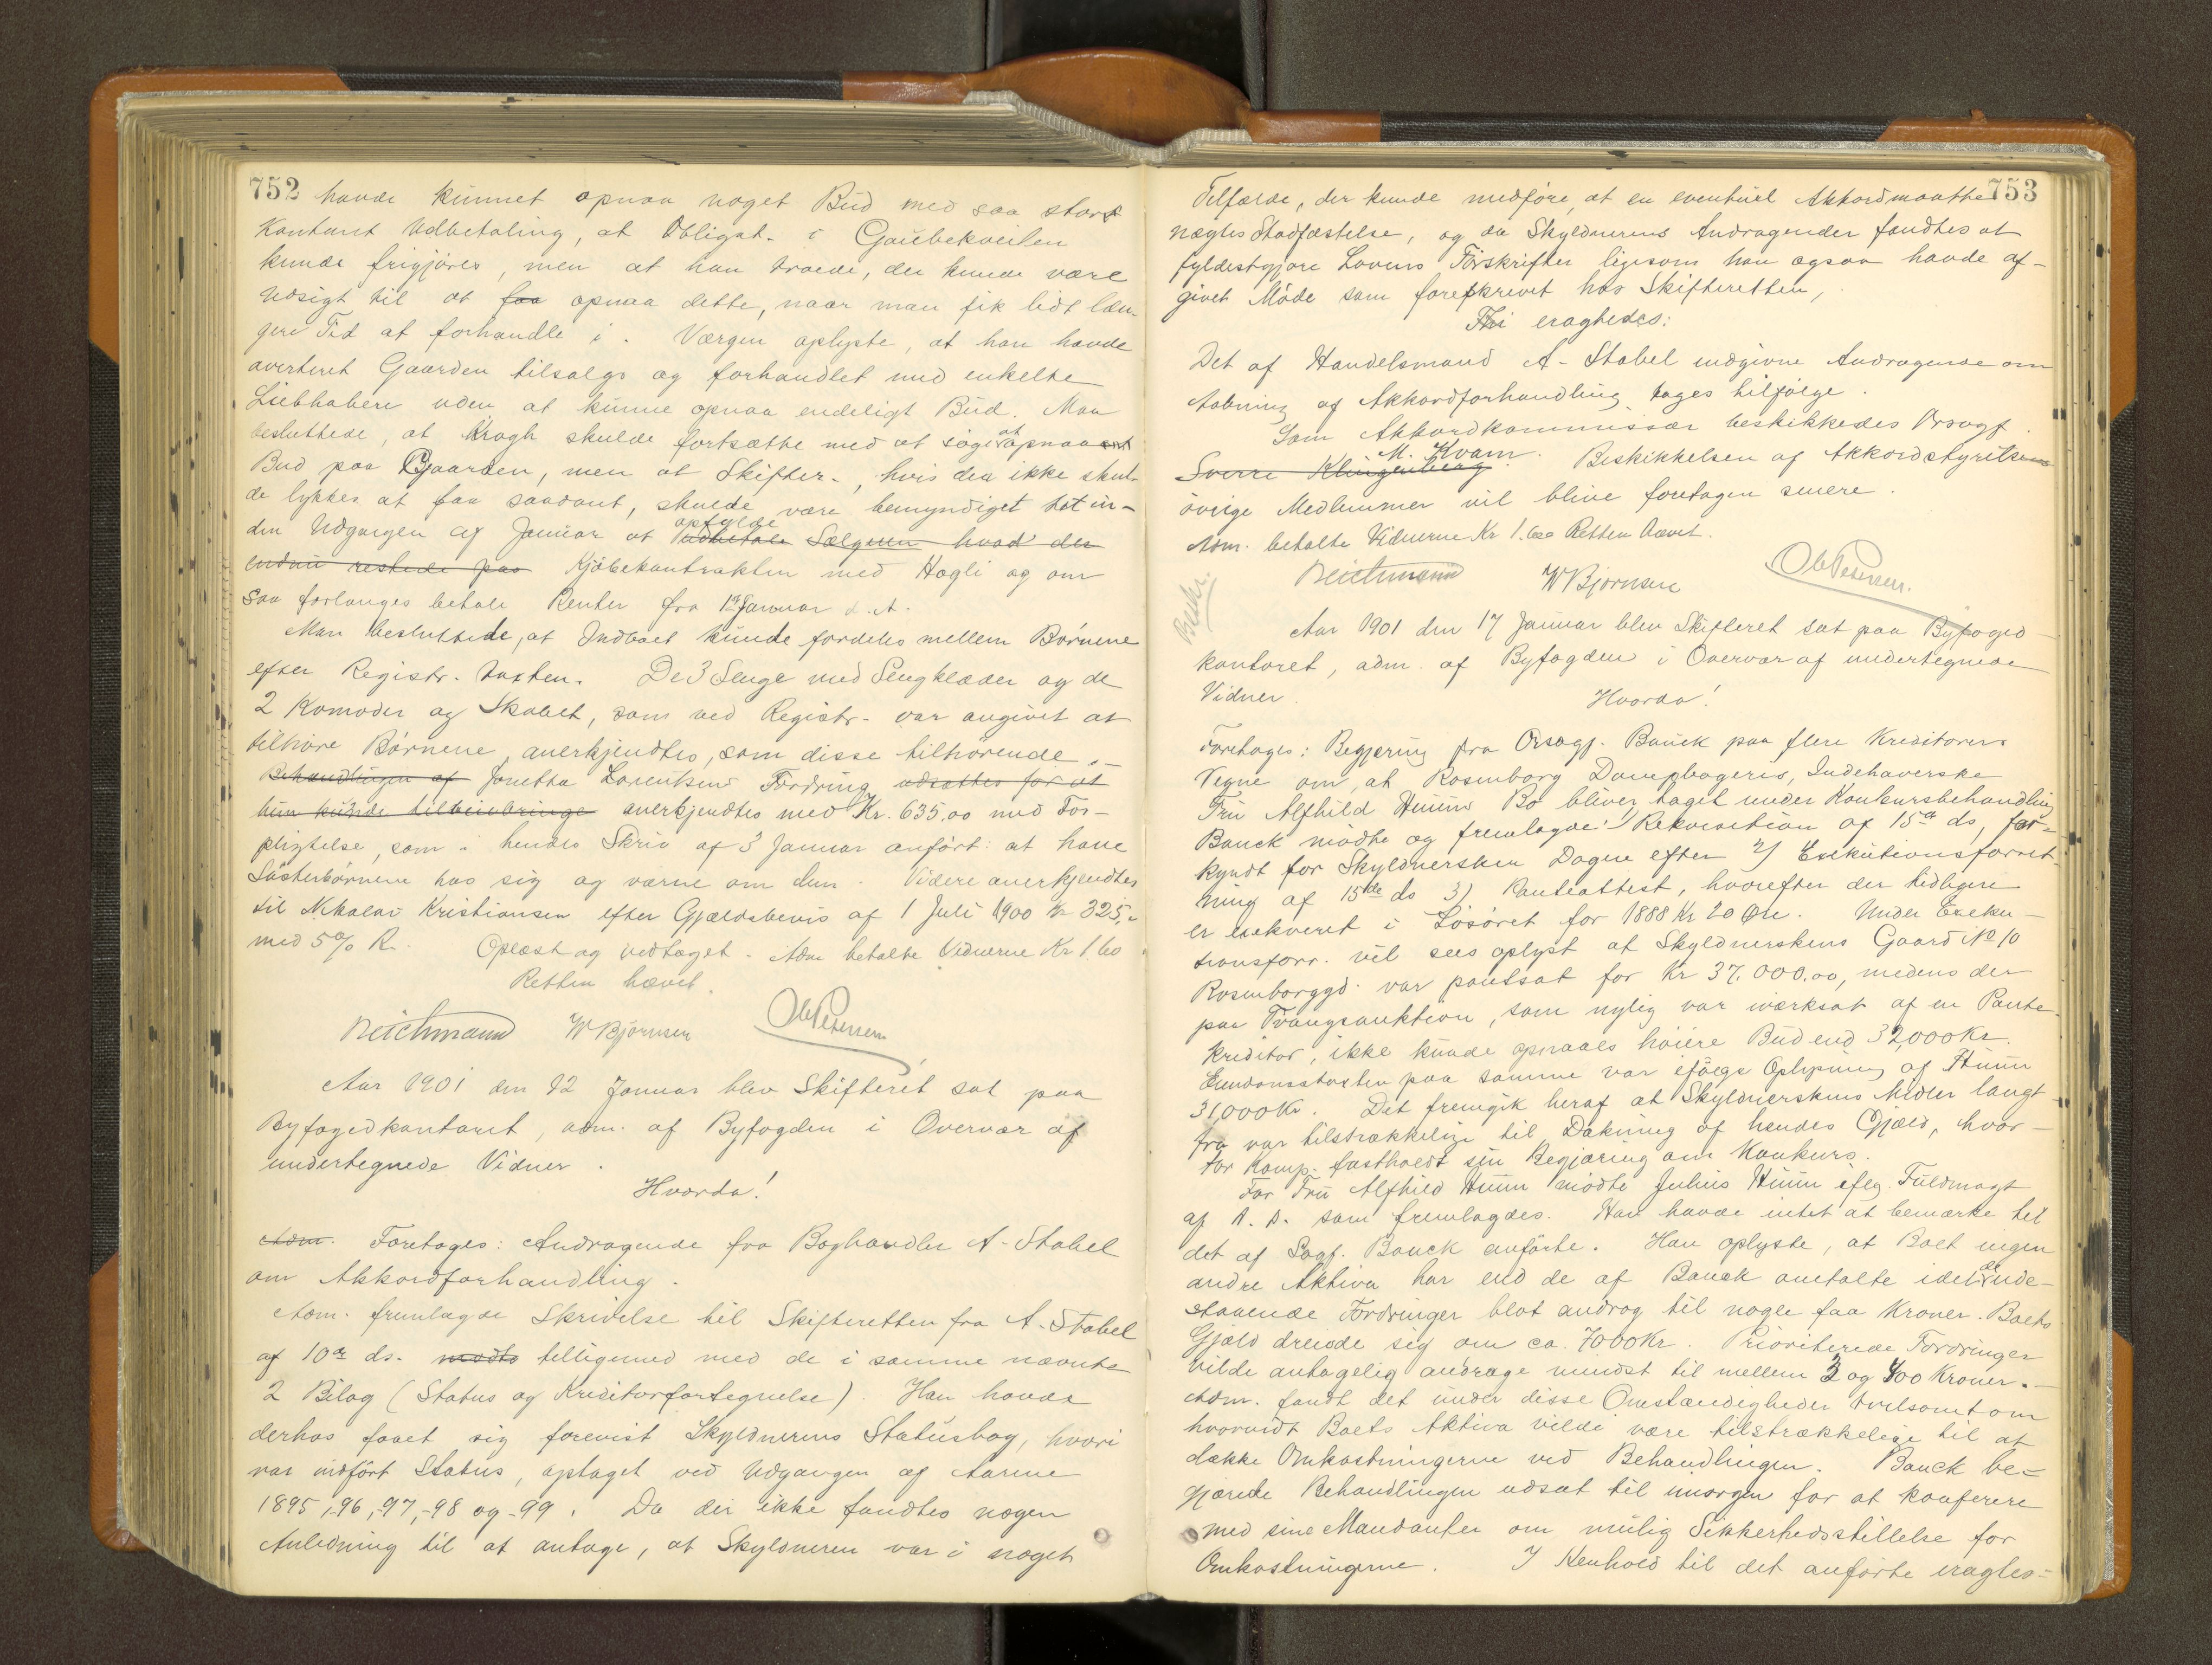 752
havde kunnet opnaa noget Bud med saa stor
Kontant Udbetaling, at Obligat. i Gaubekveilen
kunde frigjöres, men at han troede, der kunde være
Udsigt til at faa opnaa dette, naar man fik lidt læn-
gere Tid at forhandle i. Værgen oplyste, at han havde
averteret Gaarden tilsalgs og forhandlet med enkelte
Liebhabere uden at kunne opnaa endeligt Bud. Man
besluttede, at Kragh skulde fortsætte med at söge at opnaa et
Bud paa Gaarden, men at Skifter., hvis det ikke skul-
de lykkes at faa saadant, skulde være bemyndiget til in-
den Udgangen af Januar at opfylde udbetale Sælgeren hvad der
endnu restede paa Kjöbekontrakten med Hogli og om
saa forlanges betale Renter fra 1ste Januar d. A.
Man besluttede, at Indboet kunde fordeles mellem Börnene
efter Registr. taxten. De 3 Senge med Sengklæder og de
2 Komoder og Skabet, som ved Registr. var angivet at
tilhöre Börnene, anerkjendtes, som disse tilhörende.-
Behandlingen af Jonetta Lorentsens Fordring udsattes for at
hun kunde tilveiebringe anerkjendtes med Kr. 635,00 mod For-
pligtelse, som i hendes Skriv af 3 Januar anfört: at have
Sösterbörnene hos sig og værne om dem. Videre anerkjendtes
til Nikolai Kristiansen efter Gjældsbevis af 1 Juli 1900 Kr 325,-
med 5% R. Oplæst og vedtaget. Adm betalte Vidnerne Kr 1.60
Retten hævet.
Reichmann W Bjørnsen Ole Petersen
Aar 1901 den 12 Januar blev Skifteret sat paa
Byfogedkontoret, adm. af Byfogden i Overvær af
undertegnede Vidner.
Hvorda!
Adm. Foretoges: Andragende fra Boghandler A. Stabel
om Akkordforhandling.
Adm. fremlagde Skrivelse til Skifteretten fra A. Stabel
af 10de ds. mødte telligemed med de i samme nævnte
2 Bilag (Status og Kreditorfortegnelse) Han havde
derhos faaet sig forevist Skyldnerens Statusbog, hvori
var indfört Status, optaget ved Udgangen af Aarene
1895, -96, -97, -98 og -99. Da der ikke fandtes nogen
Anledning til at antage, at Skyldneren var i noget
753
Tilfælde, der kunde medföre, at en eventuel Akkord maatte
nægtes Stadfæstelse, og da Skyldnerens Andragender fandtes at
fyldestgjøre Lovens Förskrifter ligesom han ogsaa havde af-
givet Möde som foreskrevet hos Skifteretten,
Thi eragtedes:
Det af Handelsmand A. Stabel indgivne Andragende om
Aabning af Akkordforhandling tages tilfölge.
Som Akkordkommissær beskikkedes Orsagf.
Sverre Klingenberg M. Kvam. Beskikkelsen af Akkordstyrets
övrige Medlemmer vil blive foretagen senere.
Adm. betalte Vidnerne Kr 1.60 Retten hævet.
Reichmann W Bjørnsen Ole Petersen.
Bekr.
Aar 1901 den 17 Januar blev Skifteret sat paa Byfoged-
kontoret, adm. af Byfogden i Overvær af undertegnede
Vidner. Hvorda!
Foretoges: Begjæring fra Orsagf. Bauck paa flere Kreditorers
Vegne om, at Rosenborg Dampbageris, Indehaverske
Fru Alfhild Huuns Bo bliver taget under Konkursbehandling
Bauck mödte og fremlagde 1) Rekvisition af 15de ds, for-
kyndt for Skyldnersken Dagen efter 2) Exekutionsforret-
ning af 15de ds 3) Panteattest, hvorefter der tidligere
er exekveret i Lösöret for 1888 Kr 20 Øre. Under Exeku-
tionsforr. vil sees oplyst at Skyldnerskens Gaard No 10
Rosenborggd. var pantsat for Kr 37.000.00, medens der
paa Tvangsauktion, som nylig var iværksat af en Pante-
kreditor, ikke kunde opnaaes höiere Bud end 32,000 Kr.
Eiendomstaxten paa samme var iflg. Oplysning af Huun
31.000 Kr. Det fremgik heraf at Skyldnerskens Midler langt
fra var tilstrækkelige til Dækning af hendes Gjæld, hvor-
for Komp. fastholdt sin Begjæring om Konkurs.
For Fru Alfhild Huun mödte Julius Huun iflg. Fuldmagt
af D. D. som fremlagdes. Han havde intet at bemærke til
det af Sagf. Bauck anförte. Han oplyste, at Boet ingen
andre Aktiva har end de af Bauck omtalte idet de ude-
staaende Fordringer blot androg til nogle faa Kroner. Boets
Gjæld dreiede sig om ca. 7000 Kr. Prioriterede Fordringer
vilde antagelig androge mindst til mellem 3 og 400 Kroner.-
Adm. fandt det under disse Omstændigheder tvilsomt om
hvorvidt Boets Aktiva vilde være tilstrækkelige til at
dække Omkostningerne ved Behandlingen. Bauck be-
gjærede Behandlingen udsat til imorgen for at konferere
med sine Mandanter om mulig Sikkerhedsstillelse for
Omkostningerne. I Henhold til det anförte eragtes-